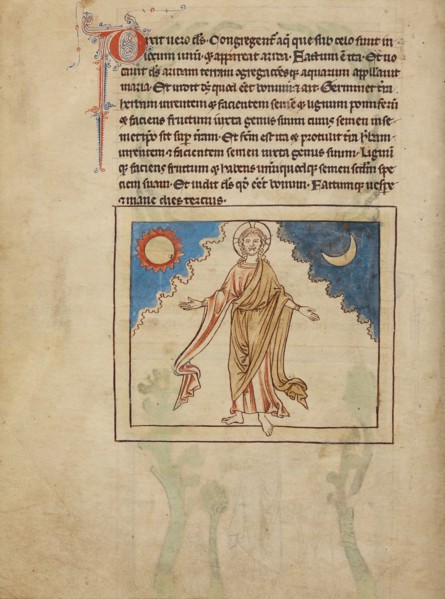 Dixit vero ds̄. Congregent̄ aq̄ que sub celo sunt in
locum unū ⁊ appareat arida. Factum ē ita. Et vo
cavit ds̄ aridam terram agregacōesq; aquarum appellavit
maria. Et vidit ds̄ quod eēt bonum ⁊ ait. Germinet t̄ra
herbam virentem ⁊ facientem semē ⁊ lignum pomiferū
⁊ faciens fructum iuxta genus suum cuius semen inse
metipso sit sup̄ t̄ram. Et fc̄m est ita ⁊ protulit t̄ra h̄bam
virentem ⁊ facientem semen iuxta genus suum. Lignūq;
faciens fructum ⁊ habens unūquodq; semen scd̄m spe
ciem suam. Et vidit ds̄ qd̄ eēt bonum. Factumq; vespe
⁊ mane dies tercius.